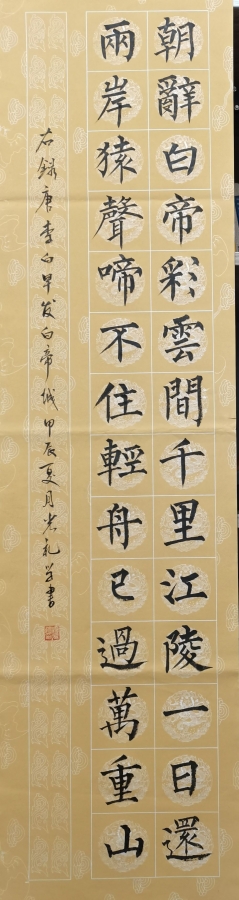 朝辭白帝彩雲間千里江陵一日還
兩岸猿聲啼不住輕舟已過萬重山
右錄唐李白早发白帝城甲辰夏月老礼学書